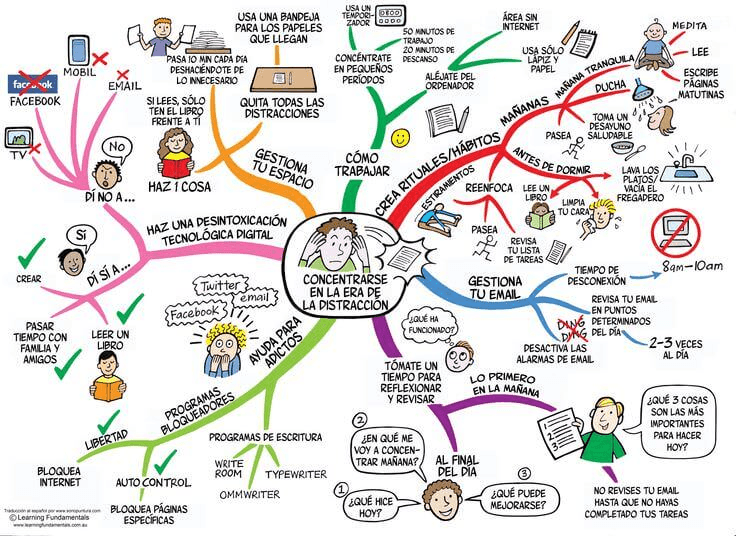 CONCENTRARSE
EN LA ERA DE
LA DISTRACCIÓN
CREA RITUALES/HÁBITOS
MAÑANAS
MAÑANA TRANQUILA
MEDITA
LEE
ESCRIBE
PÁGINAS
MATUTINAS
DUCHA
TOMA UN
DESAYUNO
SALUDABLE
PASEA
ANTES DE DORMIR
LAVA LOS
PLATOS/
VACÍA EL
FREGADERO
LIMPIA
TU CARA
LEE UN
LIBRO
REENFOCA
ESTIRAMENTOS
PASEA
REVISA
TU LISTA
DE TAREAS
GESTIONA
TU EMAIL
TIEMPO DE
DESCONEXIÓN
8am-10am
REVISA TU EMAIL
EN PUNTOS
DETERMINADOS
DEL DÍA
2-3 VECES
AL DÍA
DING
DING
DESACTIVA LAS
ALARMAS DE EMAIL
TÓMATE UN
TIEMPO PARA
REFLEXIONAR
Y REVISAR
¿QUÉ HA
FUNCIONADO?
LO PRIMERO
EN LA MAÑANA
1
2
3
¿QUÉ 3 COSAS
SON LAS MÁS
IMPORTANTES
PARA HACER
HOY?
NO REVISES TU EMAIL
HASTA QUE NO HAYAS
COMPLETADO TUS TAREAS
AL FINAL
DEL DÍA
1
¿QUÉ HICE
HOY?
2
¿EN QUÉ ME
VOY A CONCEN-
TRAR MAÑANA?
3
¿QUÉ PUEDE
MEJORARSE?
AYUDA PARA
ADICTOS
Twitter
email
Facebook
PROGRAMAS DE ESCRITURA
WRITE
ROOM
OMMWRITER
TYPEWRITER
PROGRAMAS
BLOQUEADORES
LIBERTAD
BLOQUEA
INTERNET
AUTO CONTROL
BLOQUEA PÁGINAS
ESPECÍFICAS
HAZ UNA DESINTOXICACIÓN
TECNOLÓGICA DIGITAL
DÍ SÍ A...
SÍ
CREAR
PASAR
TIEMPO CON
FAMILIA Y
AMIGOS
LEER UN
LIBRO
DÍ NO A...
NO
TV
facebook
FACEBOOK
MOBIL
EMAIL
GESTIONA
TU ESPACIO
SI LEES, SÓLO
TEN EL LIBRO
FRENTE A TÍ
HAZ 1 COSA
PASA 10 MIN CADA DÍA
DESHACIÉNDOTE DE
LO INNECESARIO
USA UNA BANDEJA
PARA LOS PAPELES
QUE LLEGAN
QUITA TODAS LAS
DISTRACCIONES
CÓMO
TRABAJAR
CONCÉNTRATE
EN PEQUEÑOS
PERÍODOS
USA UN
TEMPORI-
ZADOR
50 MINUTOS DE
TRABAJO
20 MINUTOS DE
DESCANSO
ALÉJATE DEL
ORDENADOR
ÁREA SIN
INTERNET
USA SÓLO
LÁPIZ Y
PAPEL
Traducción al español por www.sonopuntura.com
© Learning Fundamentals
www.learningfundamentals.com.au